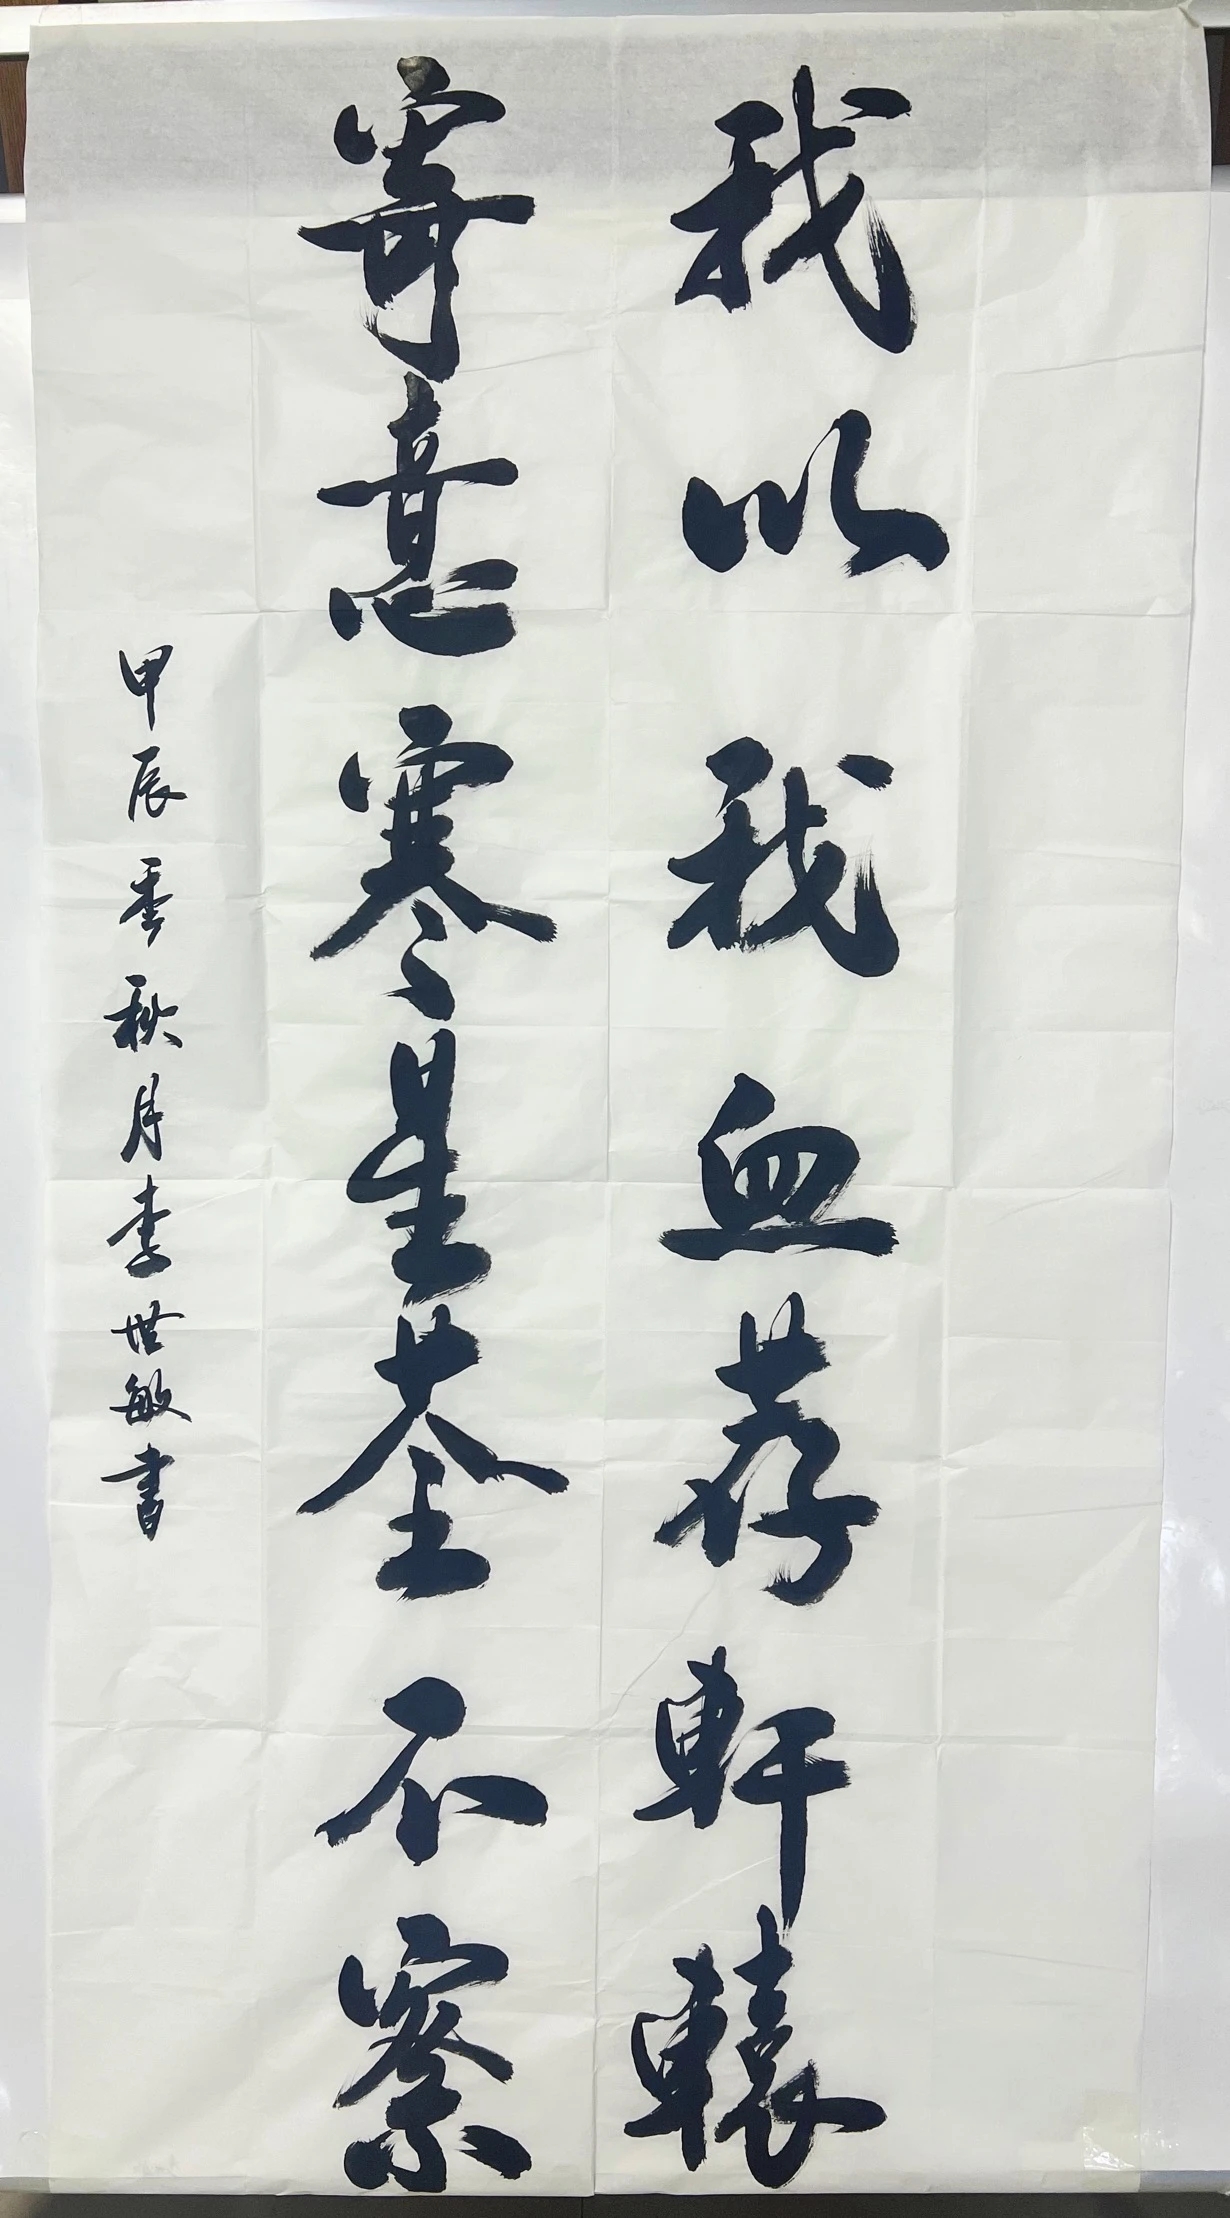 我以我血荐軒轅
寄意寒星荃不察
甲辰季秋月李世敏書